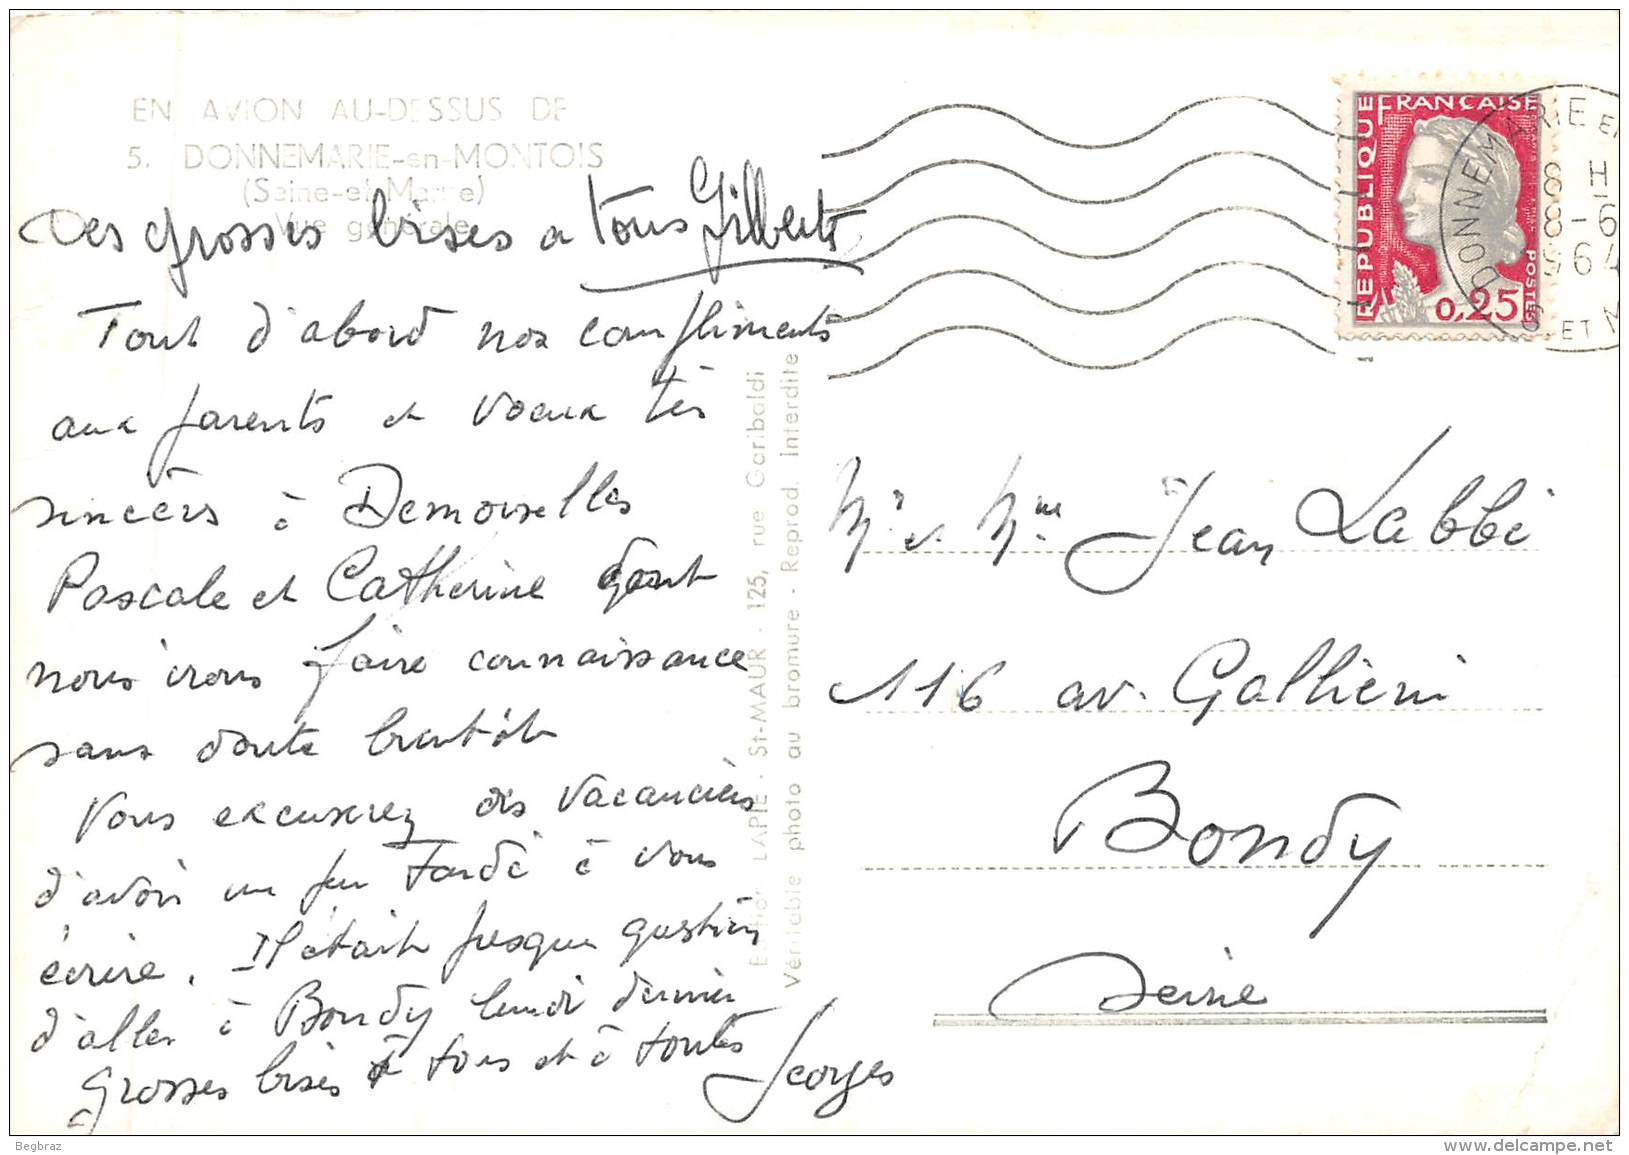 EN AVION AU-DESSUS DE
5. DONNEMARIE-en-MONTOIS
(Seine-et-Marne)
Vue générale
Des grosses bises a tous Gilberte
Tout d'abord nos compliments
aux parents et voeux très
sincères à Demoiselles
Pascale et Catherine dont
nous irons faire connaissance
sans doute bientôt
Vous excuserez des vacanciers
d'avoir un peu tardé à vous
écrire. Il était jusque question
d'aller à Bondy lundi dernier
grosses bises à tous et à toutes
Georges
Edition LAPIE - St-MAUR - 125, rue Garibaldi
Véritable photo au bromure - Reprod. Interdite
REPUBLIQUE FRANÇAISE
POSTES
0,25
DONNEMARIE EN
8 H
8-6
964
S ET M
Mr et Mme Jean Labbé
116 av. Galliéni
Bondy
Seine
Begbraz
www.delcampe.net